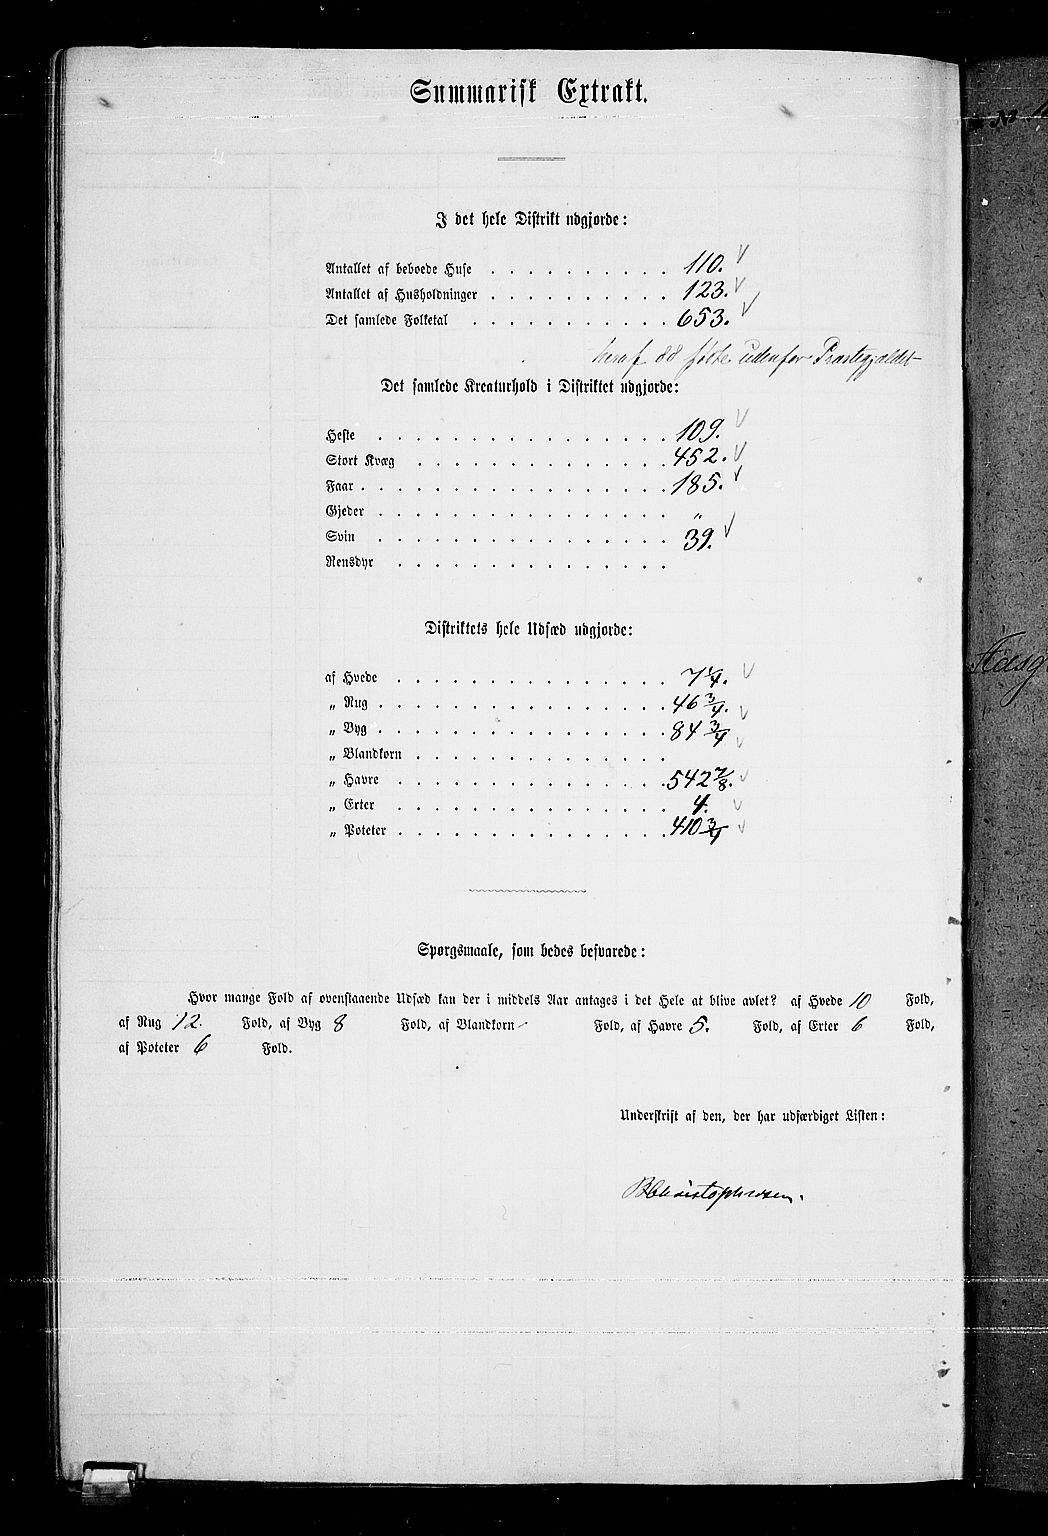 Summarisk Extrakt.
I det hele Distrikt udgjorde:
Antallet af beboede Huse . . . . . . . . . . 110.
Antallet af Husholdninger . . . . . . . . . . 123.
Det samlede Folketal . . . . . . . . . . . 653.
heraf 88 udenfor Præstegjældet
Det samlede Kreaturhold i Distriktet udgjorde:
Heste . . . . . . . . . . . . . . . . 109.
Stort Kvæg . . . . . . . . . . . . . . 452.
Faar . . . . . . . . . . . . . . . . . 185.
Gjeder . . . . . . . . . . . . . . . . "
Svin . . . . . . . . . . . . . . . . 39.
Rensdyr . . . . . . . . . . . . . . .
Distriktets hele Udsæd udgjorde:
af Hvede . . . . . . . . . . . . . . . 7 1/4.
„ Rug . . . . . . . . . . . . . . . . 46 3/4.
„ Byg . . . . . . . . . . . . . . . . 84 3/4
„ Blandkorn . . . . . . . . . . . . . .
„ Havre . . . . . . . . . . . . . . 542 7/8.
„ Erter . . . . . . . . . . . . . . . 4.
„ Poteter . . . . . . . . . . . . . . . 410 3/4
Spørgsmaale, som bedes besvarede:
Hvor mange Fold af ovenstaaende Udsæd kan der i middels Aar antages i det Hele at blive avlet? af Hvede 10 Fold,
af Rug 12. Fold, af Byg 8 Fold, af Blandkorn - Fold, af Havre 5. Fold, af Erter 6 Fold,
af Poteter 6 Fold.
Underskrift af den, der har udfærdiget Listen:
B Christophersen.